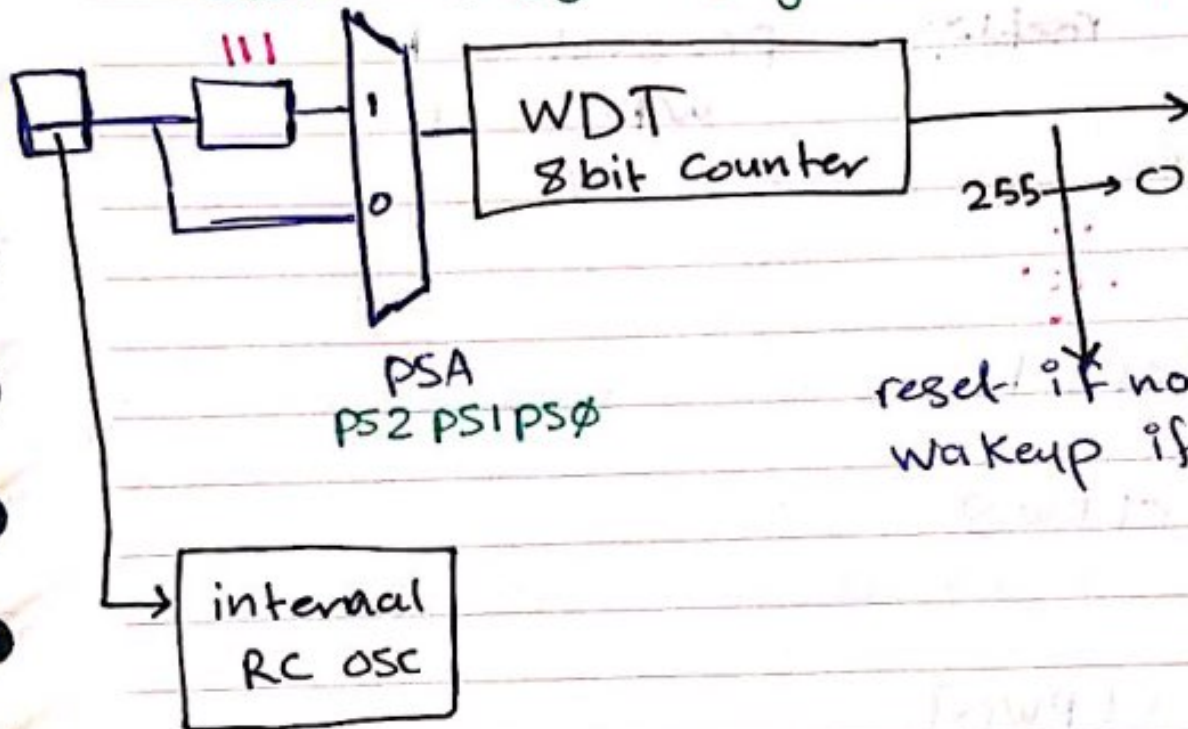 111
1
0
WDT
8bit Counter
255 → 0
PSA
PS2 PS1 PSØ
reset if no
wakeup if
internal
RC OSC